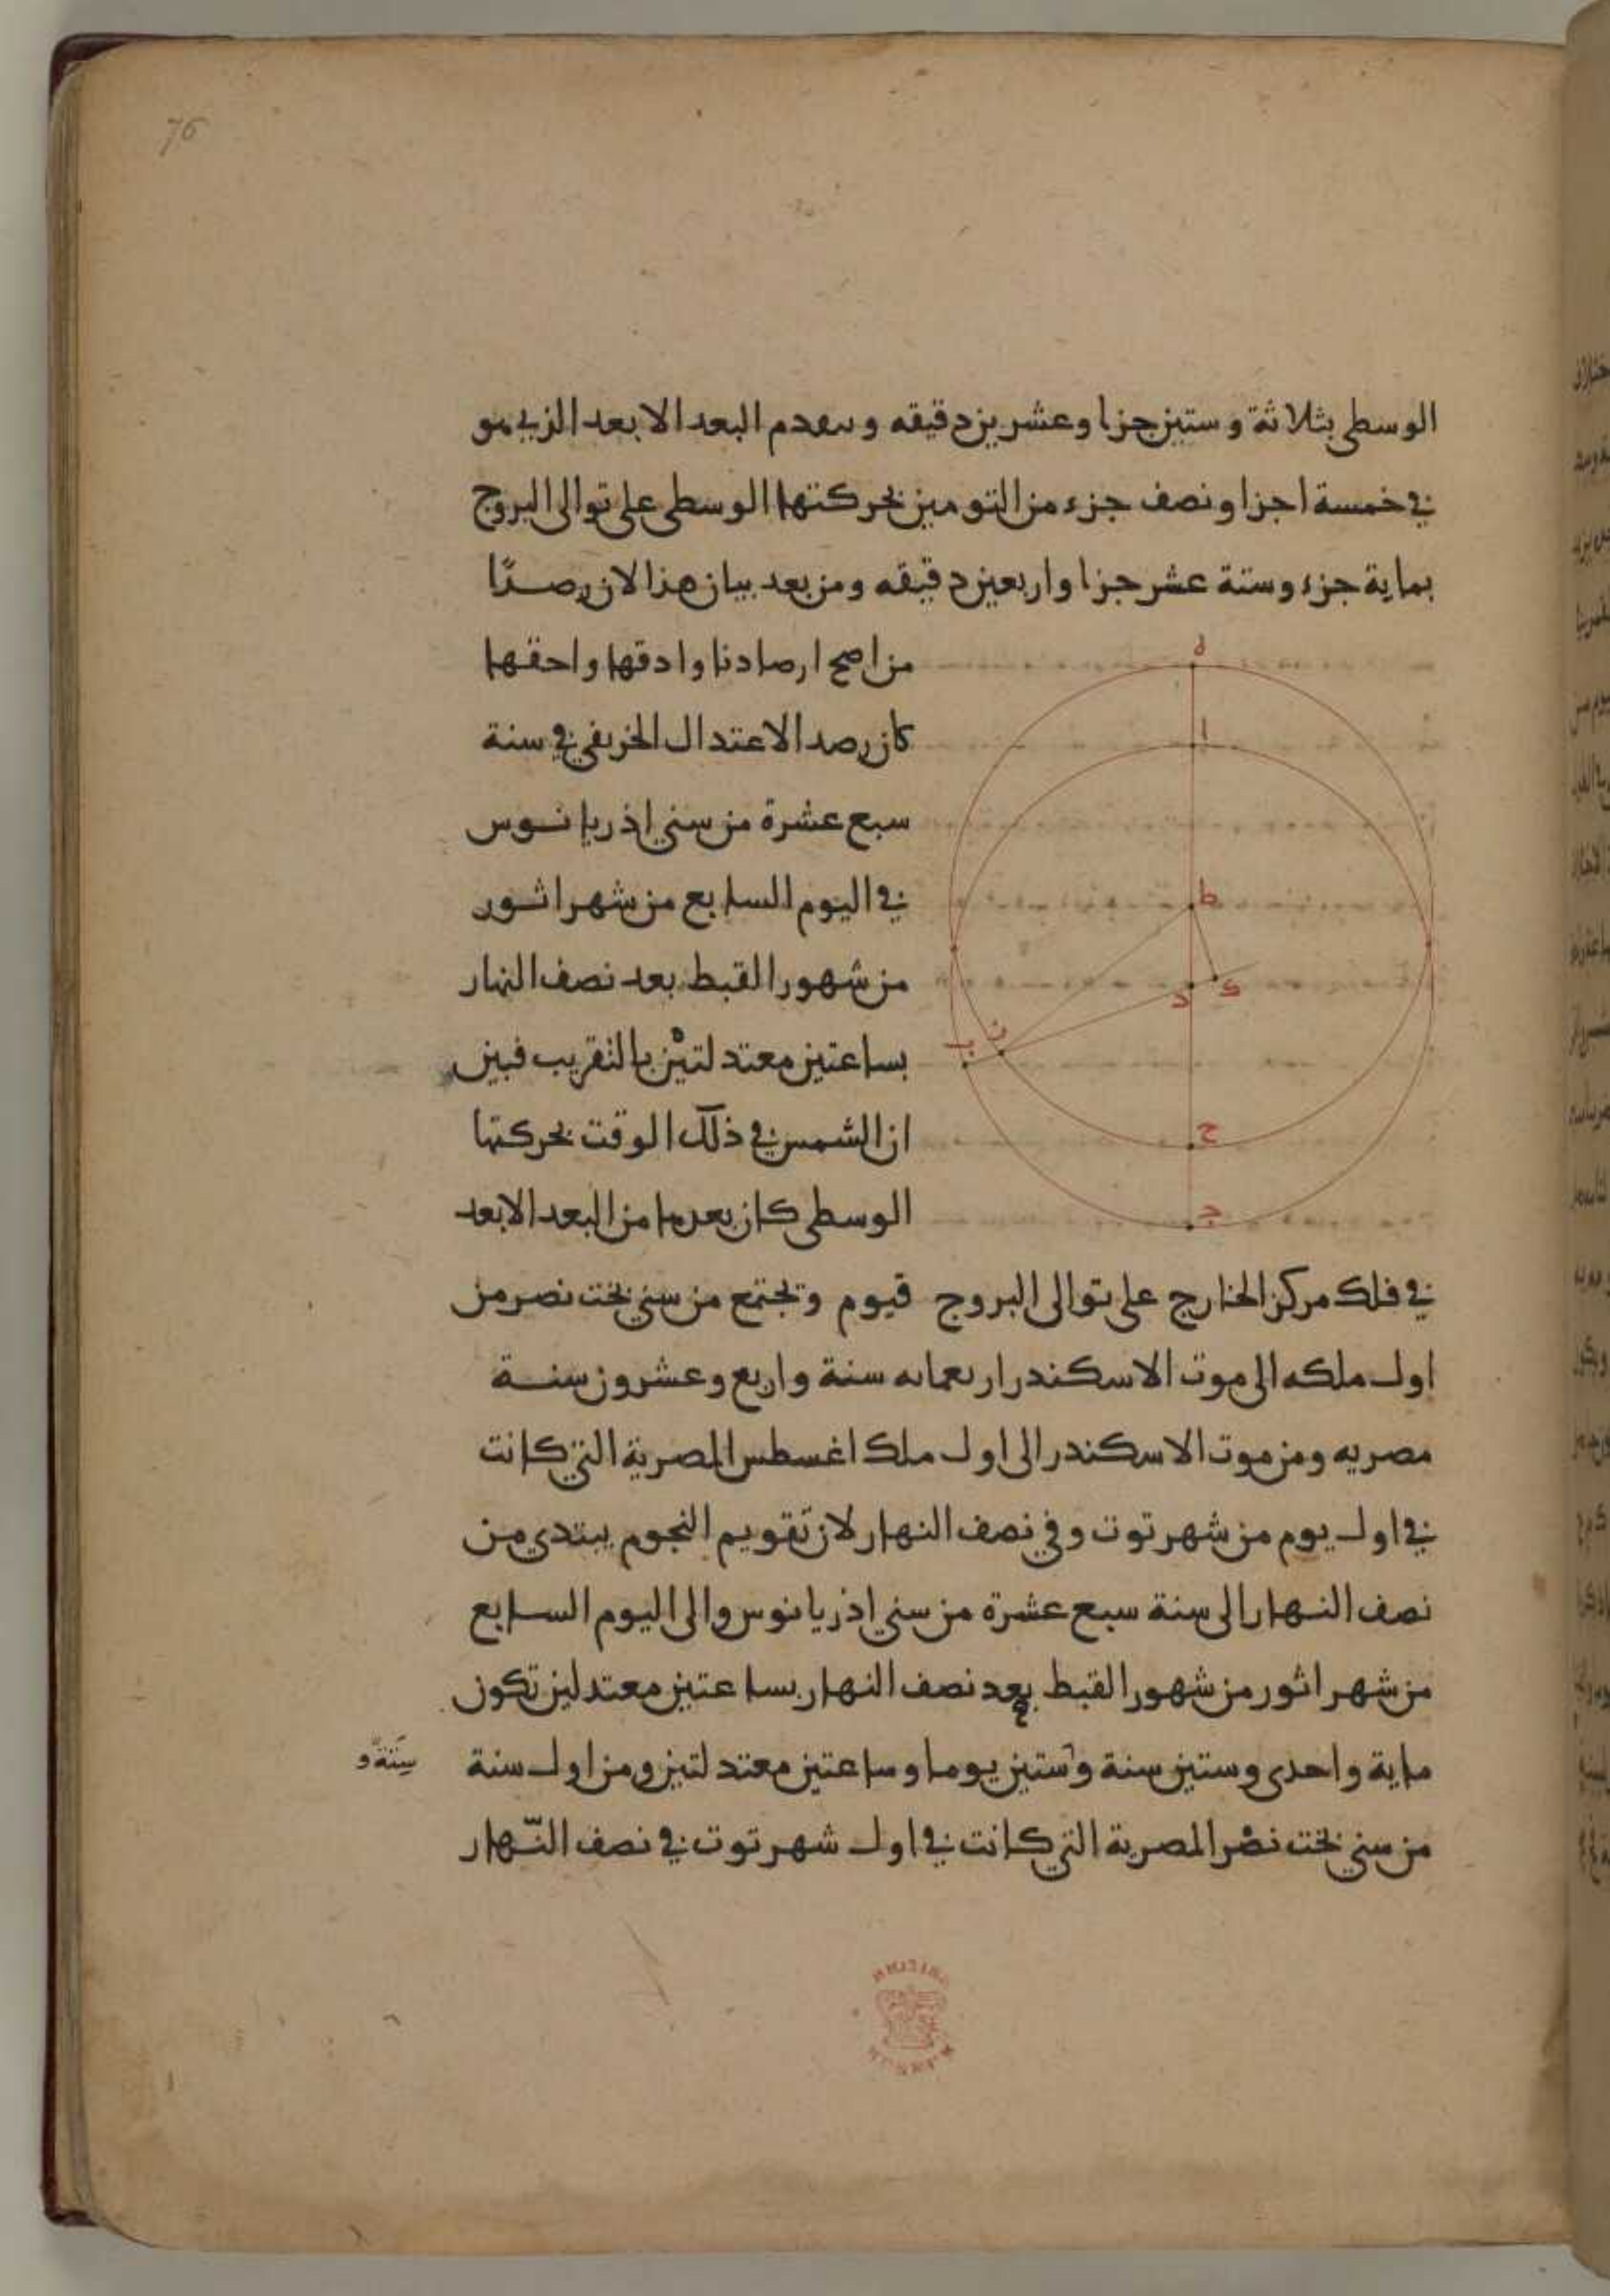 76
الوسطى بثلاثة وستين جزا وعشرين دقيقه وىىعدم البعد الابعد الذي هو
في خمسة اجزا ونصف جزء من التومين بحركتها الوسطى على توالى البروج
بماية جزء وستة عشر جزا واربعين دقيقه ومن بعد بيان هذا الان رصدًا
من اصح ارصادنا وادقها واحقها
كان رصد الاعتدال الخريفي في سنة
سبع عشرة من سني اذريانوس
في اليوم السابع من شهر اثور
من شهور القبط بعد نصف النهار
بساعتين معتدلتين بالتقريب فبين
ان الشمس في ذلك الوقت بحركتها
الوسطى كان بعدها من البعد الابعد
في فلك مركز الخارج على توالى البروج قيوم وتجتمع من سني بخت نصر من
اول ملكه الى موت الاسكندر اربعمايه سنة واربع وعشرون سنة
مصريه ومن موت الاسكندر الى اول ملك اغسطس المصرية التي كانت
في اول يوم من شهر توت وفي نصف النهار لان تقويم النجوم يبتدي من
نصف النهار الى سنة سبع عشرة من سني اذريانوس والى اليوم السابع
من شهر اثور من شهور القبط بعد نصف النهار بساعتين معتدلين تكون
ماية واحدى وستين سنة وستين يوما وساعتين معتدلتين ومن اول سنة
ستة و
من سني بخت نصر المصرية التي كانت في اول شهر توت في نصف النّهار
ه
ا
ط
ك
د
ن
ب
ح
ج